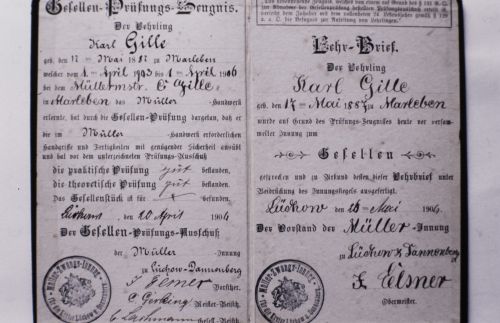 Gesellen-Prüfungs-Zeugnis.
Der Lehrling
Karl Gille
geb. den 17ten Mai 1887 zu Marleben
welcher vom 1. April 1903 bis 1. April 1906
bei dem Müllermstr. E. Gille
in Marleben das Müller-Handwerk
erlernte, hat durch die Gesellen-Prüfung dargetan, daß er
die im Müller-Handwerk erforderlichen
Handgriffe und Fertigkeiten mit genügender Sicherheit ausübt
und hat vor dem unterzeichneten Prüfungs-Ausschuß
die praktische Prüfung gut bestanden,
die theoretische Prüfung gut bestanden.
Das Gesellenstück ist bestanden.
Lüchow, den 20 April 1906
Der Gesellen-Prüfungs-Ausschuß
der Müller-Innung
zu Lüchow-Dannenberg
Elsner Vorsitzer.
Meister-Beisitz.
Beisitz.
Lehr-Brief.
Der Lehrling
Karl Gille
geb. den 17ten Mai 1887 zu Marleben
wurde auf Grund des Prüfungs-Zeugnisses heute vor versammelter Innung zum
Gesellen
gesprochen und zu Urkund dessen dieser Lehrbrief unter
Beidrückung des Innungssiegels ausgefertigt.
Lüchow den Mai 1906
Der Vorstand der Müller-Innung
zu Lüchow & Dannenberg
Elsner
Obermeister.
Müller-Zwangs-Innung
Müller-Zwangs-Innung